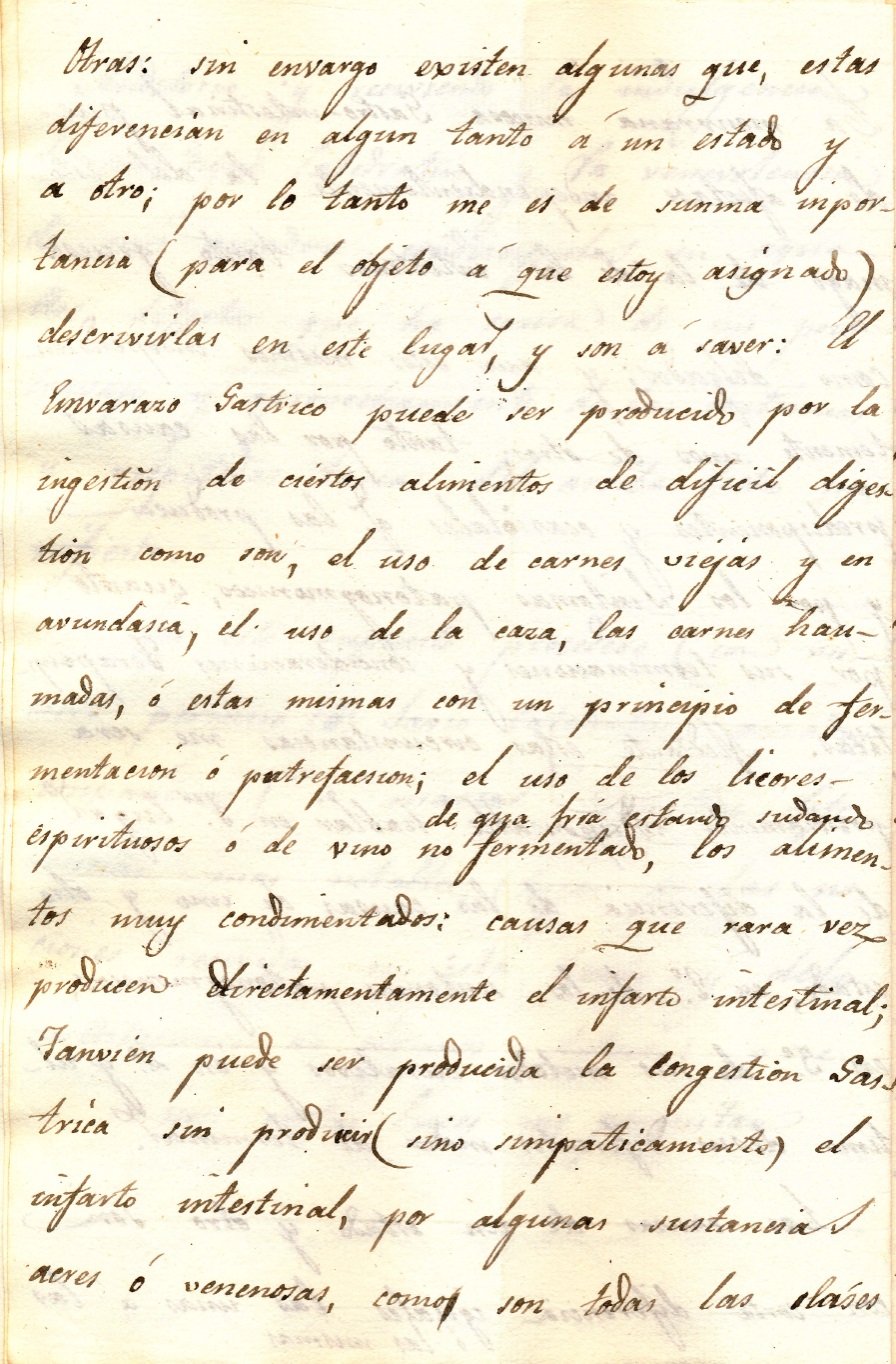 Otras: sin envargo existen algunas que, estas
diferencian en algun tanto á un estado y
a otro; por lo tanto me es de summa inpor-
tancia (para el objeto á que estoy asignado)
descrivirlas en este lugar, y son á saver: El
Envarazo Gastrico puede ser producido por la
ingestión de ciértos alimentos de dificil diges-
tión como son, el uso de carnes viejas y en
avundasia, el uso de la caza, las carnes hau-
madas, ó estas mismas con un principio de fer-
mentación ó putrefacsion; el uso de los licores-
de qua fria estando sudando
espirituosos ó de vino no fermentado, los alimen-
tos muy condimentados: causas que rara vez
producen directamentamente el infarto intestinal;
Tanvien puede ser producida la Congestión Gas-
trica sin producir (sino simpaticamente) el
infarto intestinal, por algunas sustancias
acres ó venenosas, como son todas las clases